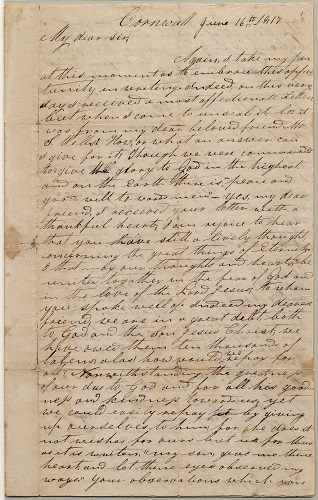 Cornwall June 16th 1817
My dear Sir,
Again I take my pen
at this moment as to embrace this oppor-
tunity in writing. Indeed on this very
day I received a most affectionate letter
but when I come to unseal it, lo it
was from my dear beloved friend Mr
S. Wells. How or what an answer can
I give for it. Though we were commanded
to give glory to God in the highest
and on the Earth there is peace and
good will to word men - Yes, my dear
friend, I received your letter with a
thankful heart, I am rejoice to hear
that you have still a lively thought
concerning the great things of Eternity
O that may our thoughts and hearts be
unite together in the fear of God and
in the love of the Lord Jesus, to whom
you spoke well of. Indeed my dearest
friend, we are in a great debt both
to God and the Son Jesus Christ, we
have owed them ten thousands of
talents, alas, how would we repay for
all. Notwithstanding the greatness
of our due to God and for all his good-
ness and kindness towards us, yet
we could easily repay by giving
up ourselves to him, for he does
not wishes for ours but us, for thus
as it is written, "my son give me thine
heart and let thine eyes observed my
ways." Your observations which was